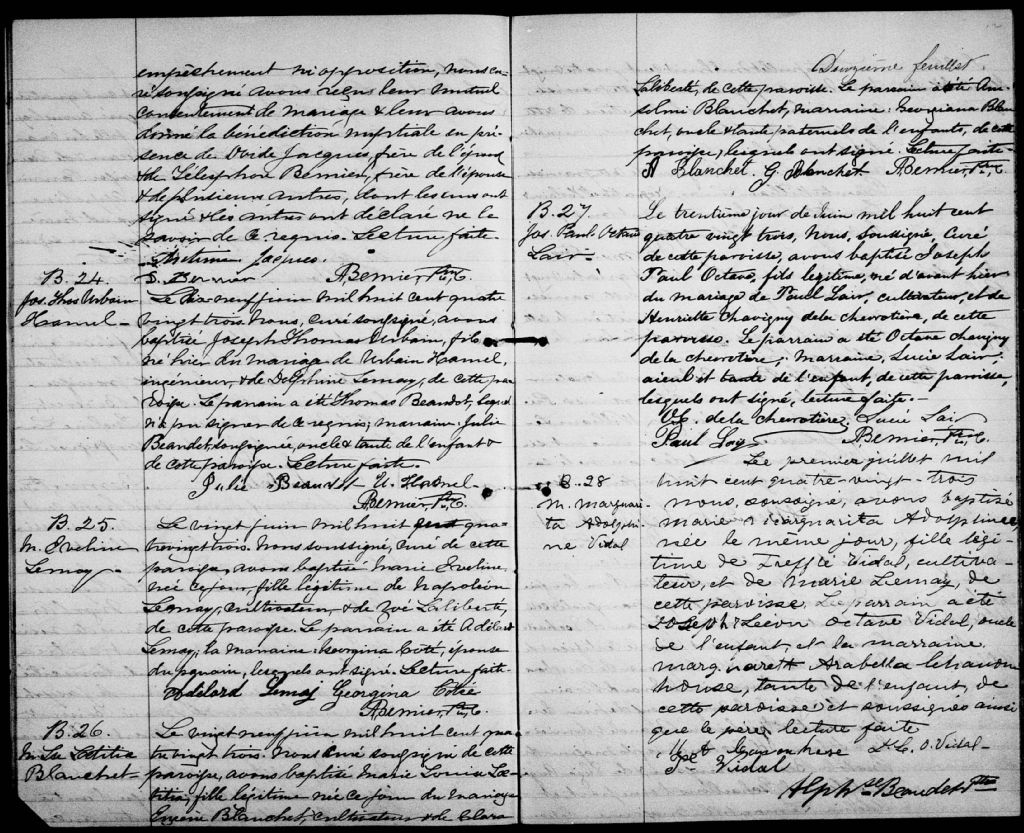 empêchement ni opposition, nous cu-
ré soussigné avons reçu leur mutuel
consentement de mariage & leur avons
donné la bénédiction nuptiale en pré-
sence de Ovide Jacques, frère de l'époux
& de Télesphore Bernier, frère de l'épouse
& de plusieurs autres, dont les uns ont
signé & les autres ont déclaré ne le
savoir de ce requis. Lecture faite.
Jacques
S. Bernier ABernier, Ptr, C.
B. 24
Jos. Thos Urbain
Hamel -
Le dix neuf juin mil huit cent quatre
vingt trois, nous, curé soussigné, avons
baptisé Joseph Thomas Urbain, fils
né hier du mariage de Urbain Hamel,
ingénieur, & de Delphine Lemay, de cette pa-
roisse. Le parrain a été Thomas Beaudet, lequel
n'a pu signer de ce requis; marraine: Julie
Beaudet, soussignée, oncle & tante de l'enfant &
de cette paroisse. Lecture faite.
Julie Beaudet U. Hamel
ABernier, Ptr, C.
B. 25.
M. Eveline
Lemay -
Le vingt juin mil huit cent qua-
trevingt trois. Nous soussigné, curé de cette
paroisse, avons baptisé Marie Eveline,
née ce jour, fille légitime de Napoléon
Lemay, cultivateur, & de Zoé Laliberté,
de cette paroisse. Le parrain a été Adélard
Lemay, la marraine: Georgina Côté, épouse
du parrain, lesquels ont signé. Lecture faite.
Adélard Lemay Georgina Cotée
ABernier, Ptr, C.
B. 26.
M. Lse Lætitia
Blanchet -
Le vingt neuf juin mil huit cent qua-
tre vingt trois. Nous curé soussigné de cette
paroisse, avons baptisé Marie Louise Læ-
titia, fille légitime née ce jour du mariage
Eugène Blanchet, cultivateur & de Clara
Deuxième feuillet
Laliberté, de cette paroisse. Le parrain a été An-
selme Blanchet, marraine: Georgiana Blan-
chet, oncle & tante paternels de l'enfant, de cette
paroisse, lesquels ont signé. Lecture faite -
A Blanchet. G. Blanchet ABernier, Ptr, C.
B. 27.
Jos. Paul Octave
Lair -
Le trentième jour de Juin mil huit cent
quatre vingt trois, Nous, soussigné, Curé
de cette paroisse, avons baptisé Joseph
Paul Octave, fils légitime, né d'avant hier
du mariage de Paul Lair, cultivateur, et de
Henriette Chavigny de la chevrotière, de cette
paroisse. Le parrain a été Octave chavigny
de la chevrotière; Marraine, Lucie Lair;
aieul et tante de l'enfant, de cette paroisse,
lesquels ont signé, lecture faite. -
Oc. de la chevrotière, Lucie Lair
Paul ABernier, Ptr, C.
B. 28
M. Marguari-
ta Adolphi-
ne Vidal
Le premier juillet mil
huit cent quatre-vingt-trois
nous, soussigné, avons baptisé
marie marguarita Adolphinee
née le même jour, fille légi-
time de Trefflé Vidal, cultiva-
teur, et de Marie Lemay, de
cette paroisse. Le parrain a été
Joseph Léon octave Vidal, oncle
de l'enfant, et la marraine
margarett Arabella
house, tante de l'enfant, de
cette paroisse et soussignés ainsi
que le père, lecture faite
O. Vidal -
Vidal
Alph. Beaudet Ptre